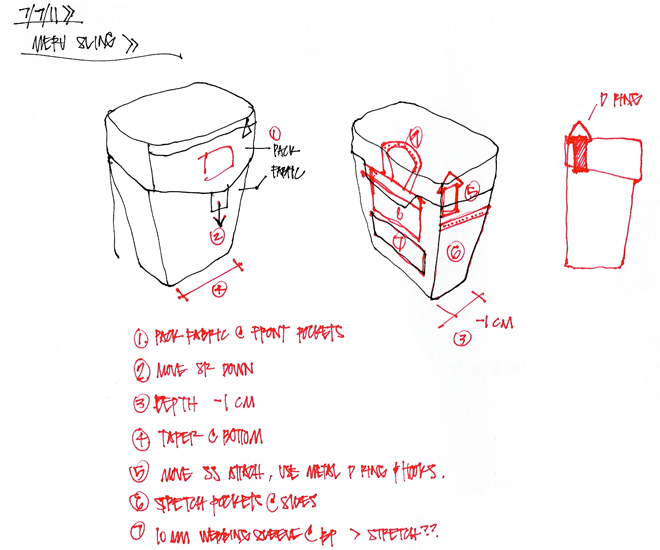 7/7/11 >>
MERU SLING >>
①
PACK
FABRIC
②
④
⑦
⑤
6
7
⑥
-1 CM
③
D RING
① PACK FABRIC @ FRONT POCKETS
② MOVE SR DOWN
③ DEPTH -1 CM
④ TAPER @ BOTTOM
⑤ MOVE SS ATTACH, USE METAL D RING & HOOKS.
⑥ STRETCH POCKETS @ SIDES
⑦ 10 MM WEBBING SLEEVE @ BP > STRETCH??